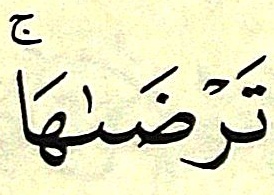 تَرۡضَىٰهَاۚ